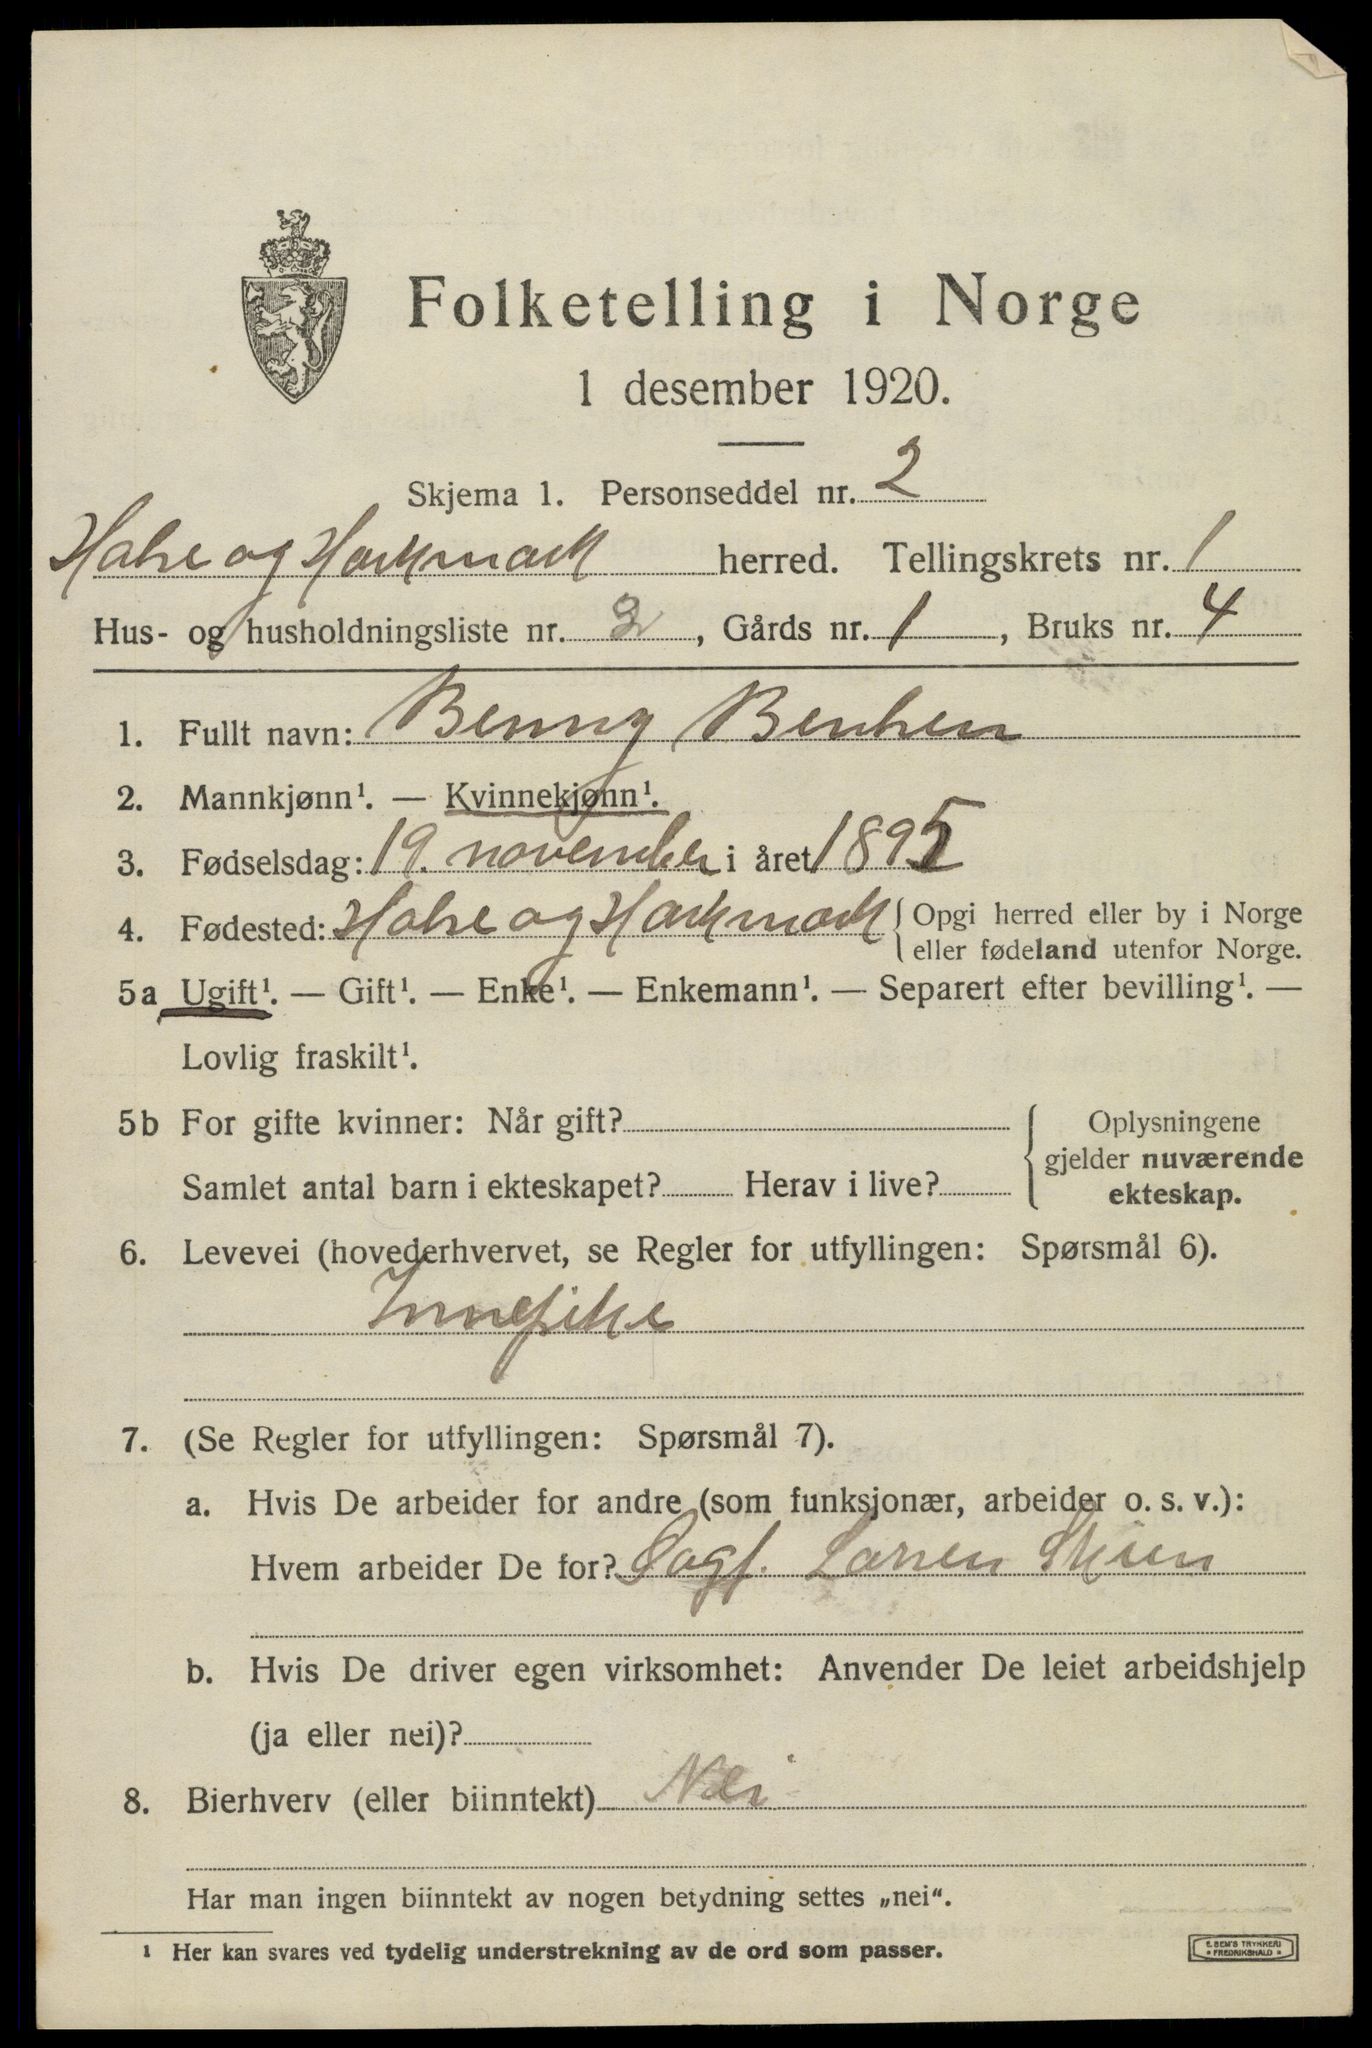 Folketelling i Norge
1 desember 1920.
Skjema 1. Personseddel nr. 2
Halse og Harkmark herred. Tellingskrets nr. 1
Hus- og husholdningsliste nr. 2, Gårds nr. 1, Bruks nr. 4
1. Fullt navn: Benny Bentsen
2. Mannkjønn¹. — Kvinnekjønn¹.
3. Fødselsdag: 19. november i året 1895
4. Fødested: Halse og Harkmark { Opgi herred eller by i Norge
eller fødeland utenfor Norge.
5a Ugift¹. — Gift¹. — Enke¹. — Enkemann¹. — Separert efter bevilling¹. —
Lovlig fraskilt¹.
5b For gifte kvinner: Når gift?
Samlet antal barn i ekteskapet? Herav i live?
{ Oplysningene
gjelder nuværende
ekteskap.
6. Levevei (hovederhvervet, se Regler for utfyllingen: Spørsmål 6).
Innepike
7. (Se Regler for utfyllingen: Spørsmål 7).
a. Hvis De arbeider for andre (som funksjonær, arbeider o. s. v.):
Hvem arbeider De for? Sagf. Larsen
b. Hvis De driver egen virksomhet: Anvender De leiet arbeidshjelp
(ja eller nei)?
8. Bierhverv (eller biinntekt) Nei
Har man ingen biinntekt av nogen betydning settes „nei“.
¹ Her kan svares ved tydelig understrekning av de ord som passer.
E. SEM'S TRYKKERI
* FREDRIKSHALD *